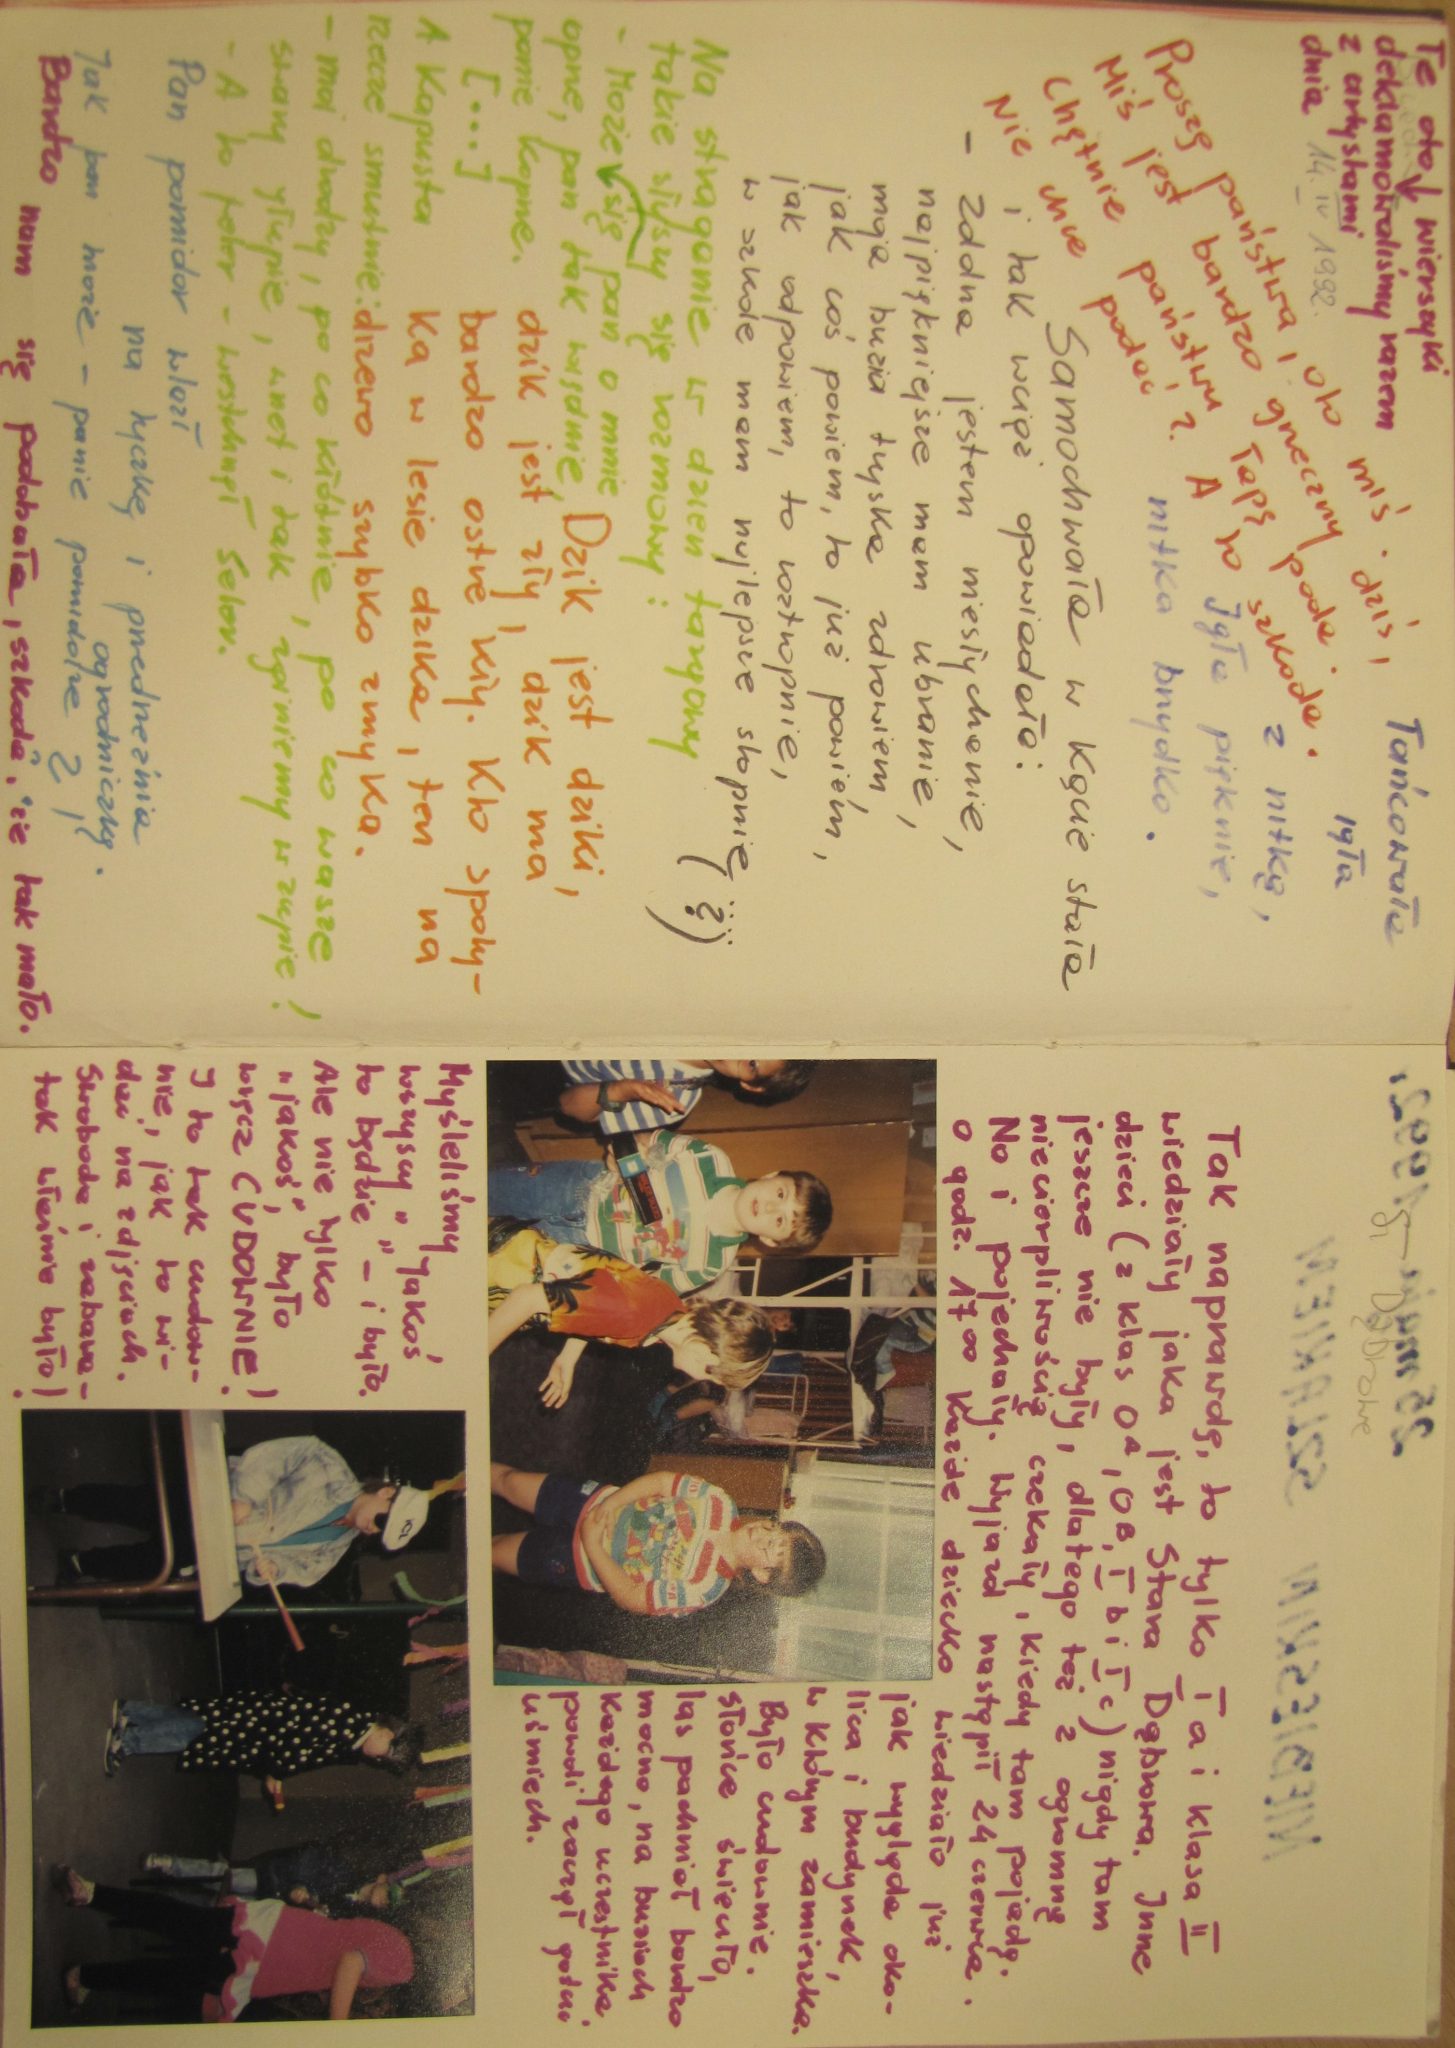 Te oto wierszyki
deklamowaliśmy razem
z artystami
dnia 14. IV 1992.
Proszę państwa, oto miś.
Miś jest bardzo grzeczny dziś,
Chętnie państwu łapę poda.
Nie chce podać? A to szkoda.
Tańcowała
igła
z nitką,
Igła pięknie,
nitka brzydko.
Samochwała w kącie stała
i tak wciąż opowiadała:
- Zdolna jestem niesłychanie,
najpiękniejsze mam ubranie,
moja buzia tryska zdrowiem,
jak coś powiem, to już powiem,
jak odpowiem, to roztropnie,
w szkole mam najlepsze stopnie
(?!)
Na straganie w dzień targowy
takie słyszy się rozmowy:
- Może się pan o mnie
oprze, pan tak więdnie,
panie koprze.
[...]
A kapusta
rzecze smutnie:
- moi drodzy, po co kłótnie, po co wasze
swary głupie, wnet i tak zginiemy w zupie!
- A to feler - westchnął seler.
Dzik jest dziki,
dzik jest zły, dzik ma
bardzo ostre kły. Kto spoty-
ka w lesie dzika, ten na
drzewo szybko zmyka.
Pan pomidor wlazł
na tyczkę i przedrzeźnia
ogrodniczkę.
Jak pan może - panie pomidorze?!
Bardzo nam się podobała, szkoda, że tak mało.
Tak naprawdę, to tylko I a i klasa II
wiedziały jaka jest Stara Dąbrowa. Inne
dzieci (z klas 0A, 0B, I b i I c) nigdy tam
jeszcze nie były, dlatego też z ogromną
niecierpliwością czekały, kiedy tam pojadą.
No i pojechały. Wyjazd nastąpił 24 czerwca.
o godz. 17 00 każde dziecko wiedziało już
jak wygląda oko-
lica i budynek,
w którym zamieszka.
Było cudownie.
Słońce świeciło,
las pachniał bardzo
mocno, na buziach
każdego uczestnika
powoli zaczął gościć
uśmiech.
Myśleliśmy
wszyscy "jakoś
to będzie" - i było.
Ale nie tylko
"jakoś", było
wręcz CUDOWNIE!
I to tak cudow-
nie, jak to wi-
dać na zdjęciach.
Swoboda i zabawa -
tak właśnie było!